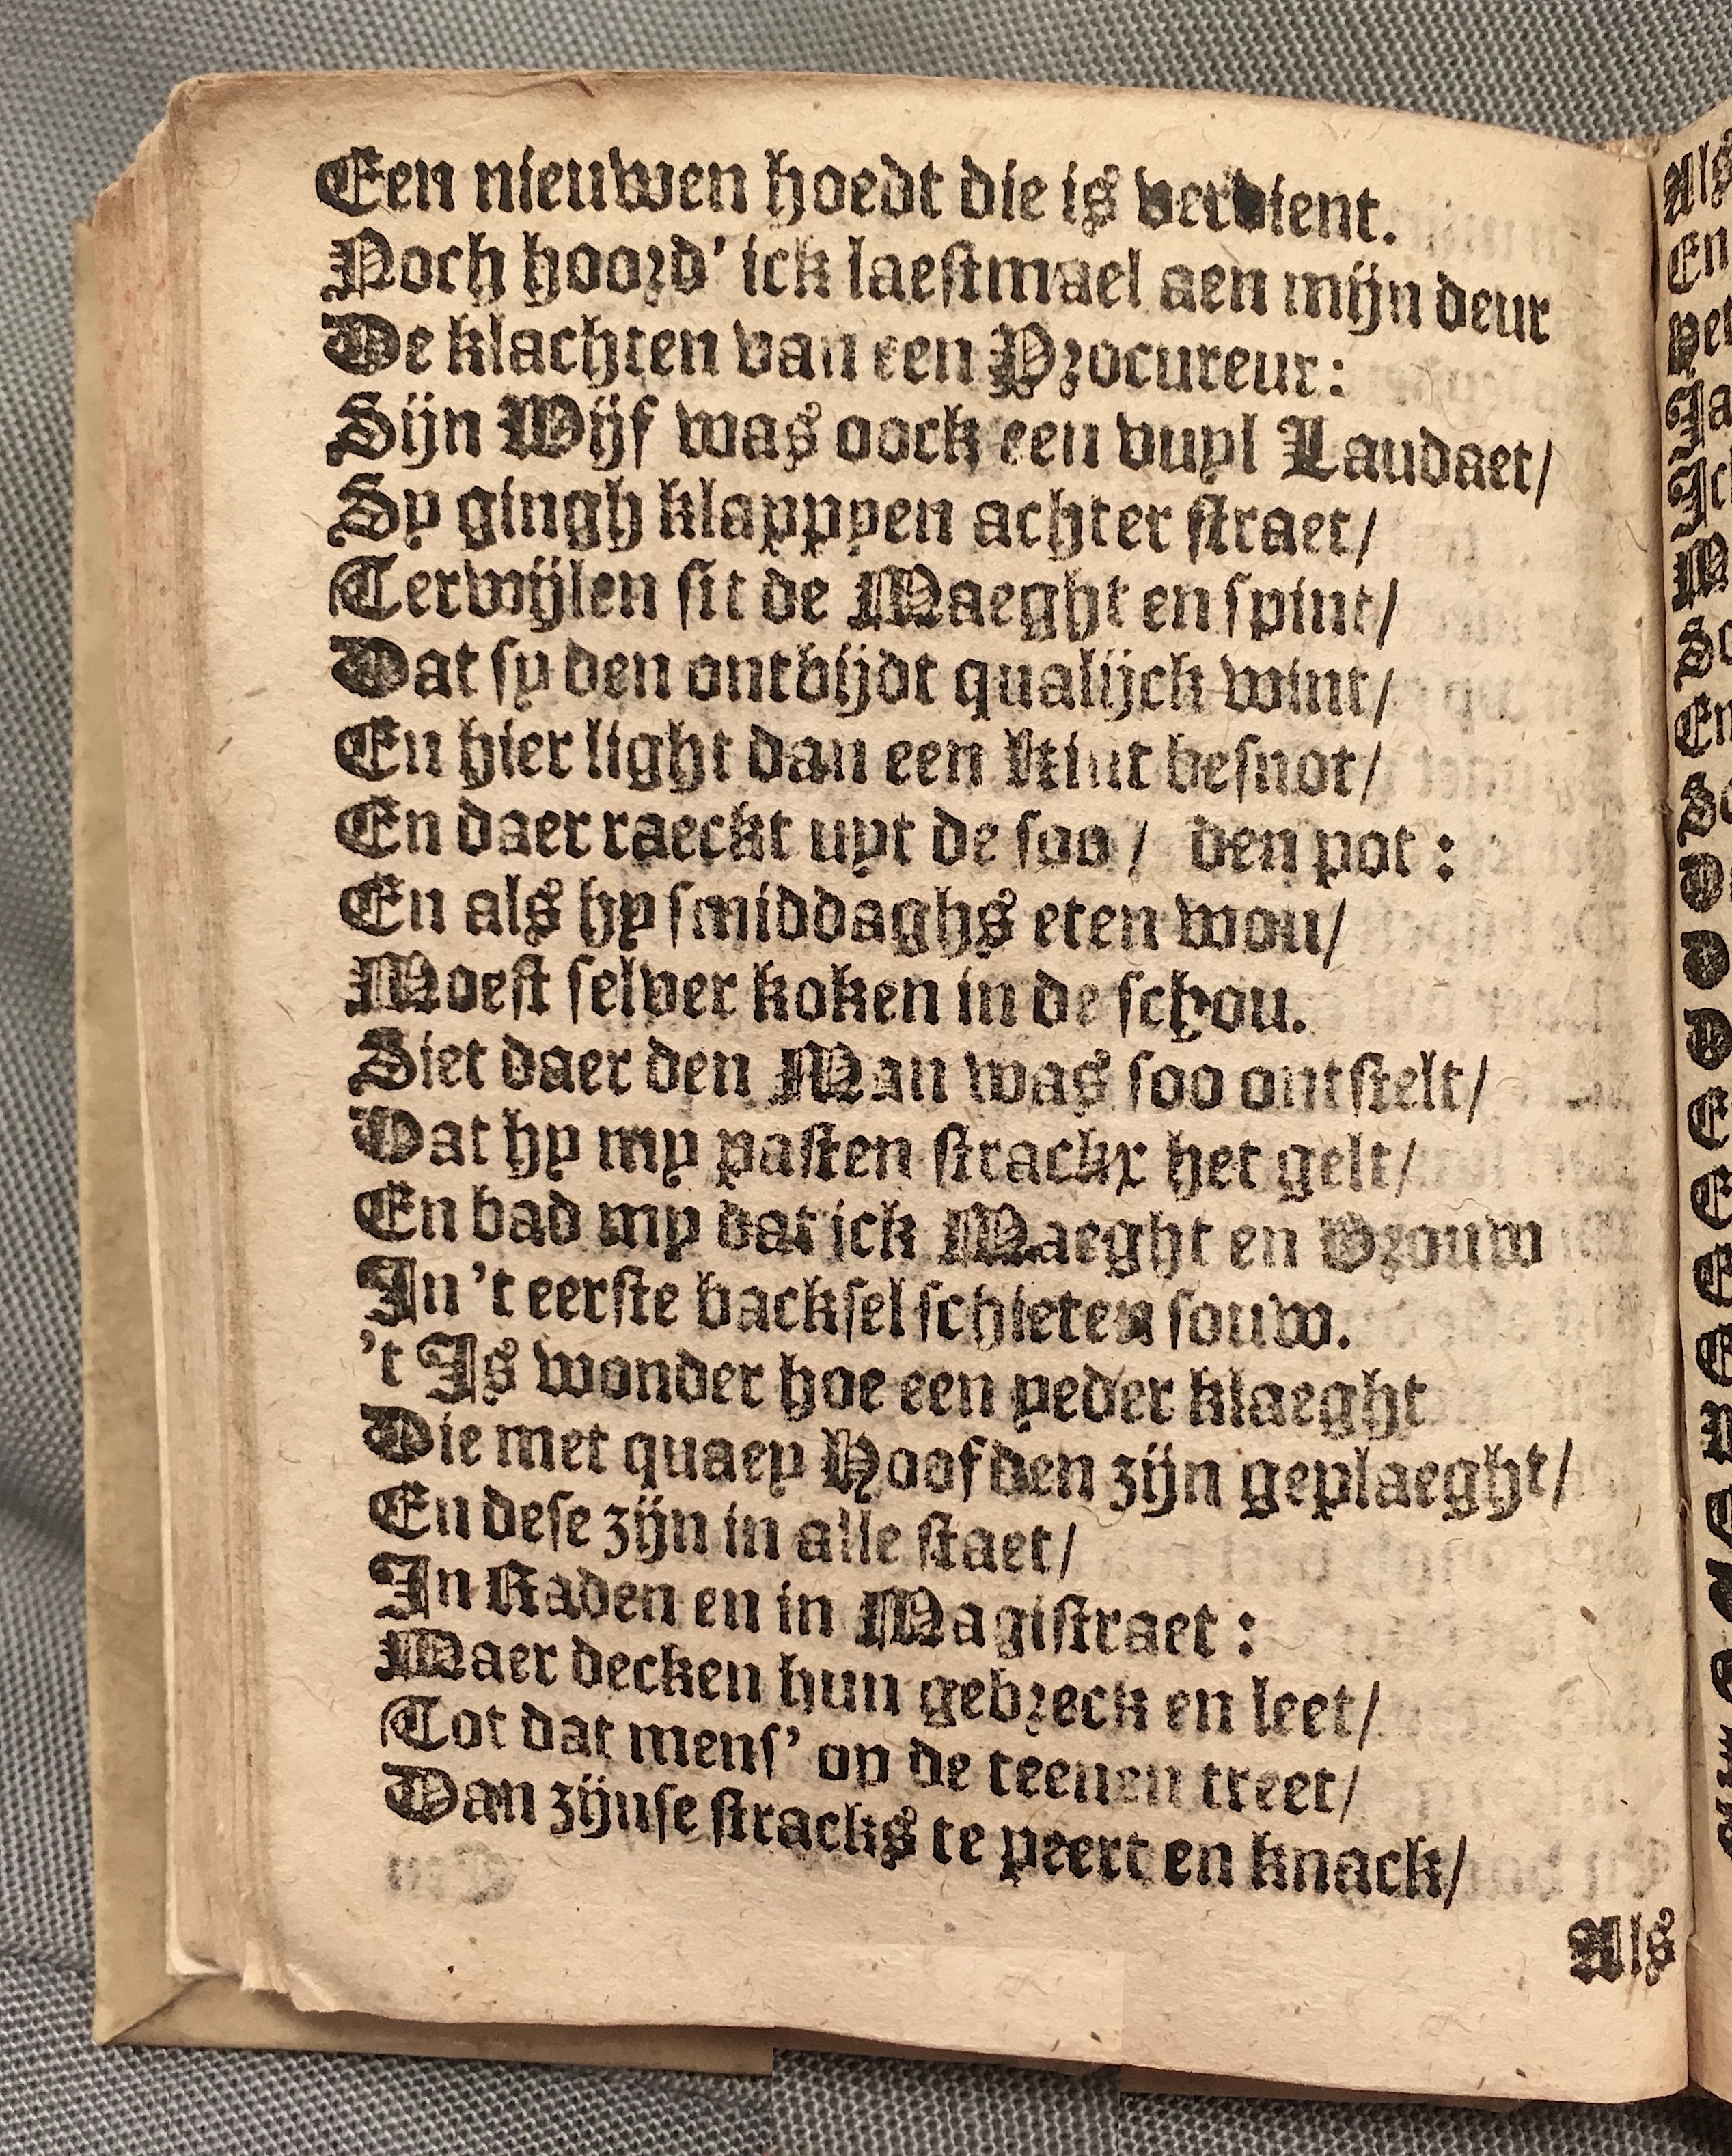 Een nieuwen hoedt die is verdient.
Noch hoord' ick laestmael aen mijn deur
De klachten van een Procureur:
Sijn Wijf was oock een vuyl Laudaet/
Sy gingh klappyen achter straet/
Terwijlen sit de Maeght en spint/
Dat sy den ontbijdt qualijck wint/
En hier light dan een Kint besnot/
En daer raeckt uyt de soo/ den pot :
En als hy smiddaghs eten wou/
Moest selver koken in de schou.
Siet daer den Man was soo ontstelt/
Dat hy my pasten strackx het gelt/
En bad my dat ick Maeght en Vrouw
In 't eerste backsel schieten souw.
't Is wonder hoe een yeder klaeght
Die met quaey Hoofden zijn geplaeght/
En dese zijn in alle staet/
In Raden en in Magistraet :
Maer decken hun gebreck en leet/
Tot dat mens' op de teenen treet/
Dan zijnse stracks te peert en knack/
Als